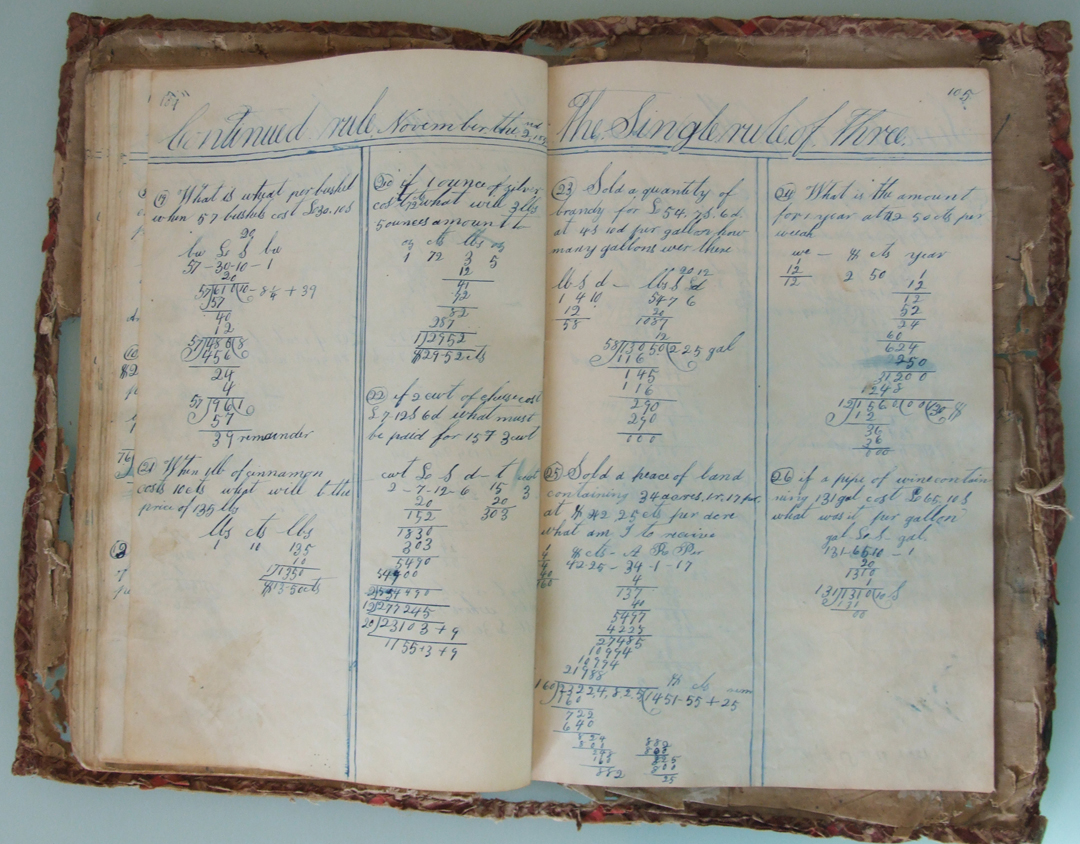 Continued rule November the
(19) What is wheat per bushel
when 57 bushels cost £30.10s
bu £ s bu
57-30-10-1
20
57)610(10-8 1/4 + 39
57
40
12
57)480(8
456
24
4
57)96(1
57
39 remainder
(21) When 1lb of cinnamon
costs 10cts what will be the
price of 135 lbs
lbs cts lbs
1 10 135
10
1)1350
$13-50cts
(20) if 1 ounce of silver
cost 72 what will 3lbs
5ounces amount to
oz cts lbs oz
1 72 3 5
12
41
72
82
287
1)2952
$29-52cts
(22) if 2cwt of cheese cost
£7-12s6d what must
be paid for 15T 3cwt
cwt £ s d - t cwt
2-7-12-6 15 3
20 20
152 303
1830
303
5490
54900
2)554490
12)277245
20)23103+9
1155+3+9
105
The Single rule of Three.
(23) Sold a quantity of
brandy for £54.7s.6d
at 4s10d per gallon how
many gallons wer there
4 10 54 7 6
12 20
58 1087
12
58)13050(225 gal
116
145
116
290
290
000
(25) Sold a peace of land
containing 34acres.1r.17per
at $42 25cts per acre
what am I to receive
$ cts - A Ro Per
42-25-34-1-17
4
137
40
5497
4225
27485
10994
10994
21988
160)232248,25(1451-55+25
160
722
640
(24) What is the amount
for 1 year at $2 50cts per
weak
we - $ cts year
1 2 50 1
12 12
12 12
52
24
60
624
250
31200
1248
12)156000(
12
36
36
000
(26) if a pipe of wine contain-
ning 131gal cost £65,10s
what was it per gallon
gal £ s. gal.
131-65-10-1
20
1310
1
131)1310(10s
131
00